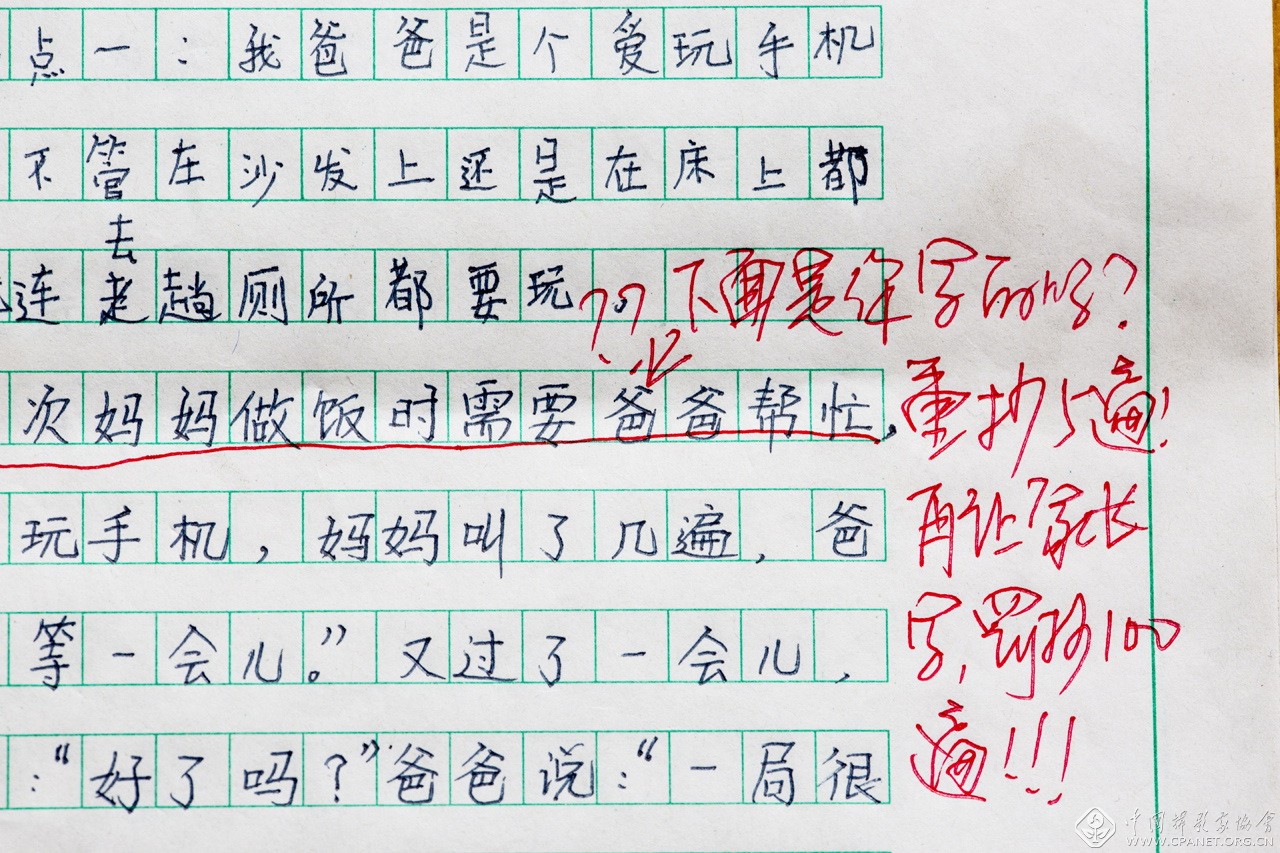 点一：我爸爸是个爱玩手机
不管在沙发上还是在床上都
去
连老趟厕所都要玩。
次妈妈做饭时需要爸爸帮忙，
玩手机，妈妈叫了几遍，爸
等一会儿。”又过了一会儿，
：“好了吗？”爸爸说：“一局很
??下面是你写的吗？
重抄5遍！
再让家长
写，罚抄100
遍！！！
中国摄影家协会
WWW.CPANET.ORG.CN